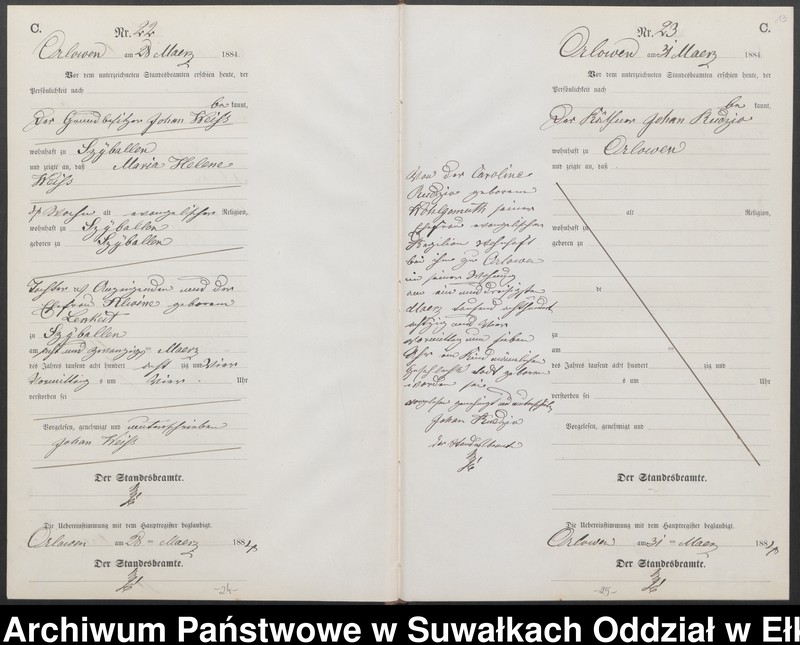 C.
Nr. 22
Orlowen am 28 Maerz 1884.
Vor dem unterzeichneten Standesbeamten erschien heute, der
Persönlichkeit nach
be kannt,
Der Grundbesitzer Johan Weiß
wohnhaft zu Szÿballen
und zeigte an, daß Maria Helene
Weiß
Wochen alt evangelischer Religion,
wohnhaft zu Szÿballen
geboren zu Szÿballen
Tochter des Anzeigenden und der
Ehefrau geborene
Lenkeit
zu Szÿballen
am acht und zwanzigsten Maerz
des Jahres tausend acht hundert acht zig und Vier
Vormittag s um Vier Uhr
verstorben sei
Vorgelesen, genehmigt und unterschrieben
Johan Weiß
Der Standesbeamte.
Die Uebereinstimmung mit dem Hauptregister beglaubigt.
Orlowen am 28 ten Maerz 1884
Der Standesbeamte.
-24-
C.
Nr. 23
Orlowen am 31 Maerz 1884
Vor dem unterzeichneten Standesbeamten erschien heute, der
Persönlichkeit nach
be kannt,
Der Käthner Johan Rudzio
wohnhaft zu Orlowen
und zeigte an, daß
alt Religion,
wohnhaft zu
geboren zu
de
zu
am ten
des Jahres tausend acht hundert zig und
s um Uhr
verstorben sei
Vorgelesen, genehmigt und
Von der Caroline
Rudzio geborene
Wohlgemuth seiner
Ehefrau evangelischer
Religion wohnhaft
bei ihm zu Orlowen
in seiner Wohnung
am ein und dreißigsten
Maerz tausend achthundert
achtzig und Vier
Vormittag um sieben
Uhr ein Kind männlichen
Geschlechts todt geboren
worden sei
Vorgelesen genehmigt und unterschrieben
Johan Rudzio
der Standesbeamte
Der Standesbeamte.
Die Uebereinstimmung mit dem Hauptregister beglaubigt.
Orlowen am 31 ten Maerz 1884
Der Standesbeamte.
-25-
Archiwum Państwowe w Suwałkach Oddział w Ełk